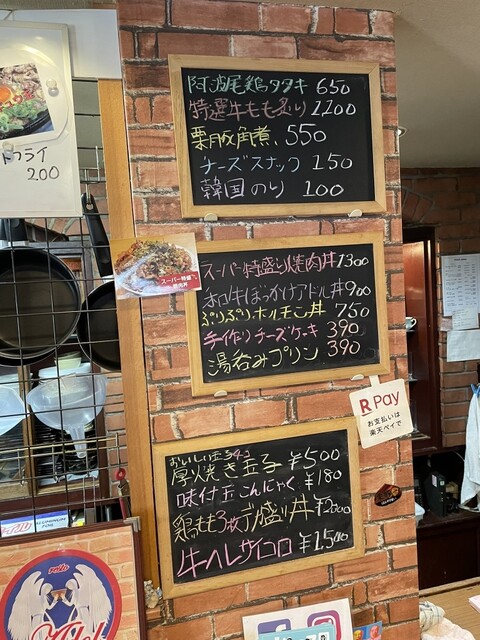 トフライ
200
阿波尾鶏タタキ 650
特選牛もも炙り 1200
栗豚角煮、550
チーズスナック 150
韓国のり 100
スーパー特盛り焼肉丼 1300
ぶっかけアイドル丼 900
ぷりぷりホルモン丼 750
手作りチーズケーキ 390
湯呑みプリン 390
スーパー特盛
焼肉丼
R Pay
お支払いは
楽天ペイで
おいしい
厚焼き玉子 ¥500
味付玉こんにゃく ¥180
鶏もも3枚デカ盛り丼 ¥2000
牛ヘレサイコロ ¥1,500
ALUMINUM FOIL